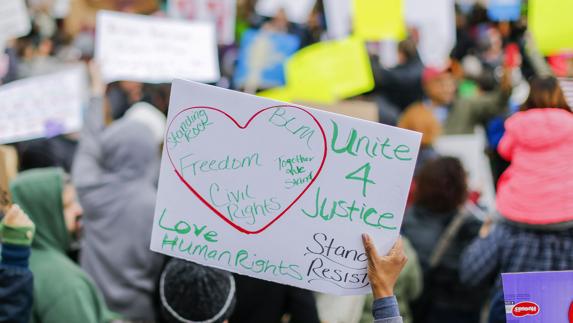 Standing
Rock
BLM
Freedom
Together
We
Stand
Civil
Rights
Unite
4
Justice
Love
Human Rights
Stand
Resist